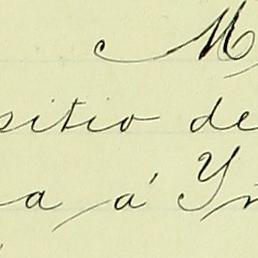 M
sitio de
a á Yn